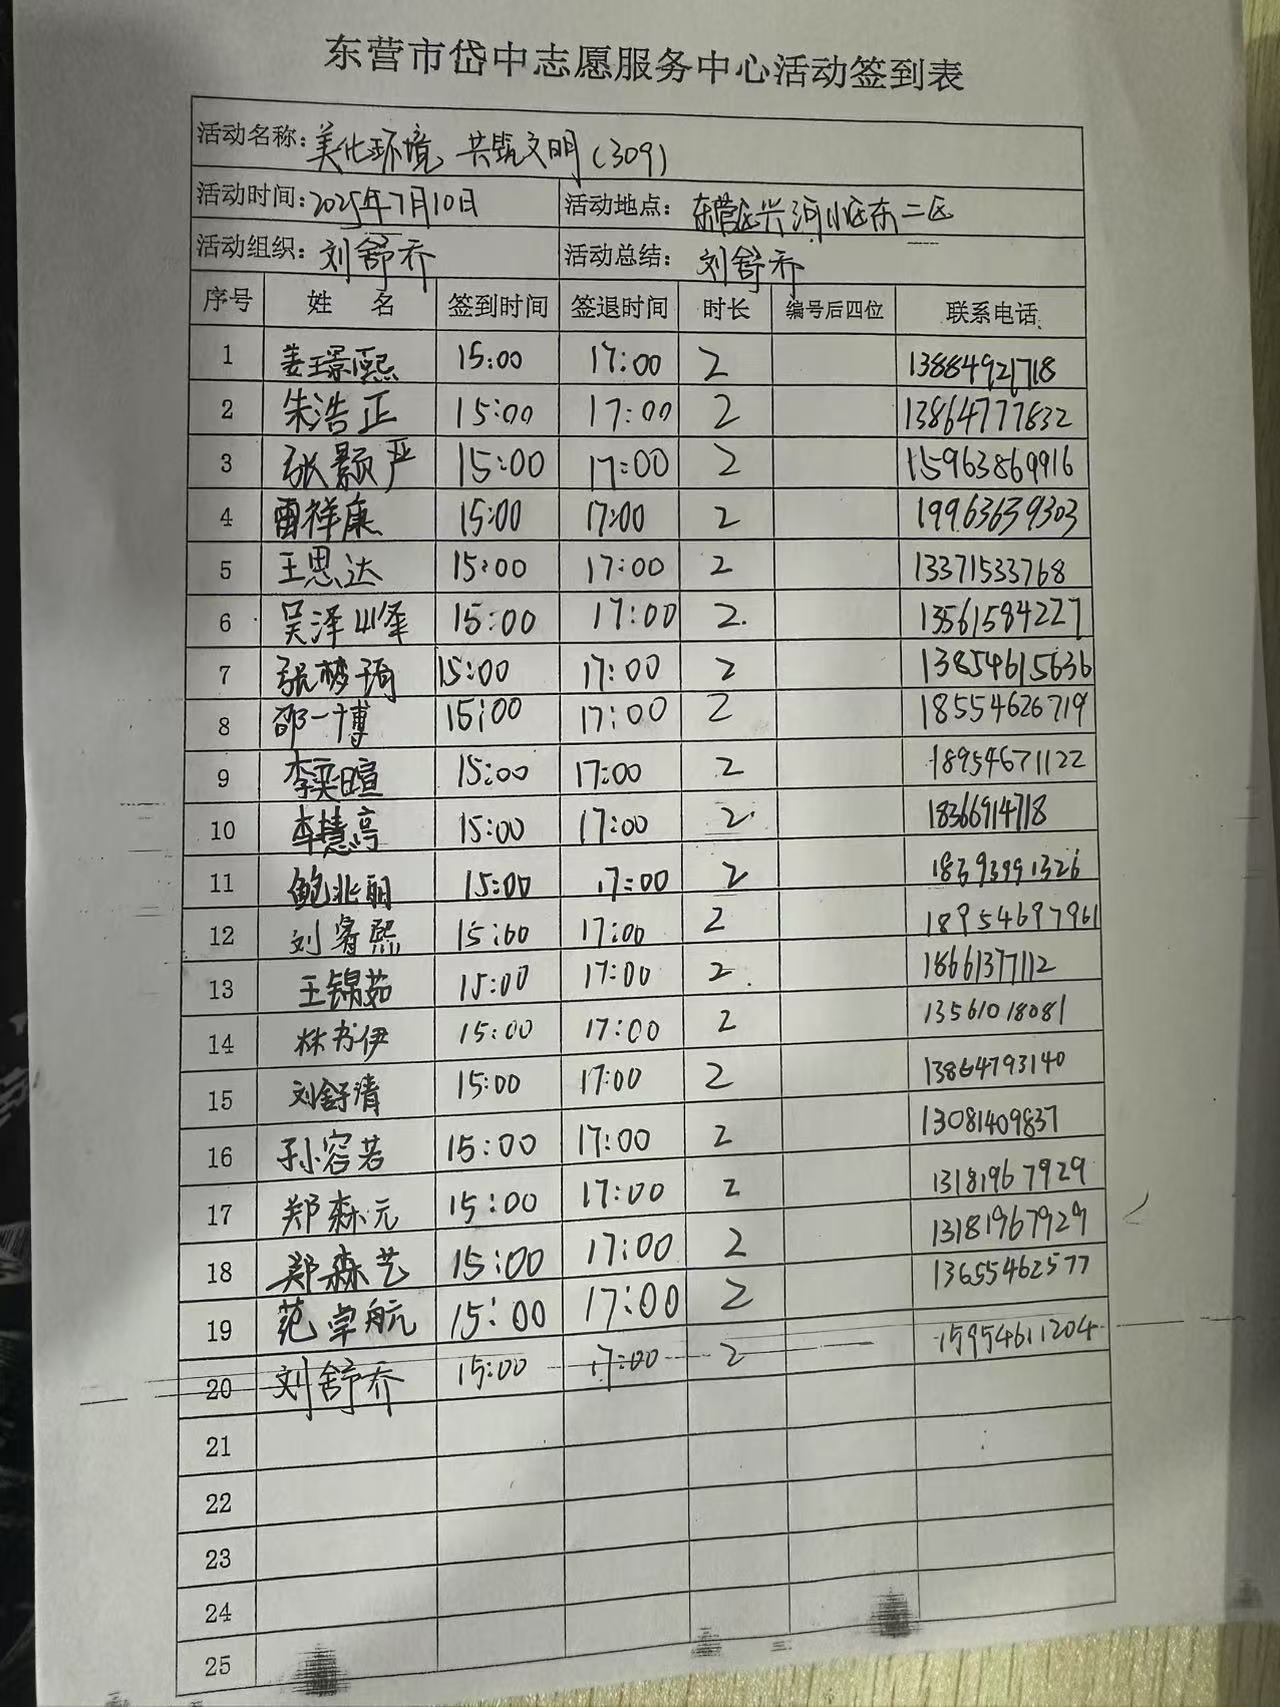 东营市岱中志愿服务中心活动签到表
活动名称: 美化环境 共筑文明(309)
活动时间: 2025年7月10日 活动地点: 东营区兴河小区东二区
活动组织: 刘舒乔 活动总结: 刘舒乔
序号 姓 名 签到时间 签退时间 时长 编号后四位 联系电话
1 姜璟熙 15:00 17:00 2 13884921718
2 朱浩正 15:00 17:00 2 13864777832
3 张颢严 15:00 17:00 2 15963869916
4 雷祥康 15:00 17:00 2 19963639303
5 王思达 15:00 17:00 2 13371533768
6 吴泽峰 15:00 17:00 2 13561584227
7 张梦琦 15:00 17:00 2 13854615636
8 邵一博 15:00 17:00 2 18554626719
9 李奕暄 15:00 17:00 2 18954671122
10 李慧亭 15:00 17:00 2 18366914718
11 鲍兆丽 15:00 17:00 2
12 刘睿熙 15:00 17:00 2 18954697961
13 王锦茹 15:00 17:00 2 18661377112
14 林书伊 15:00 17:00 2 13561018081
15 刘舒清 15:00 17:00 2 13864793140
16 孙容若 15:00 17:00 2 13081409837
17 郑森元 15:00 17:00 2 13181967929
18 郑森艺 15:00 17:00 2 13181967929
19 范卓航 15:00 17:00 2 13655462577
20 刘舒乔 15:00 17:00 2 15954611204
21
22
23
24
25